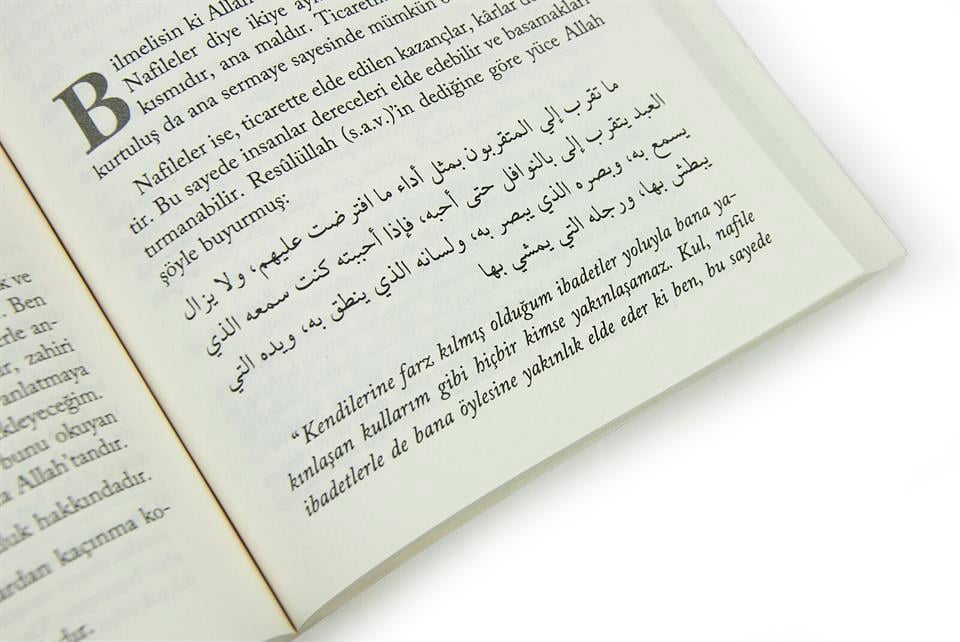 k ve
Ben
erle an-
zahiri
anlatmaya
kleyeceğim.
bunu okuyan
a Allah'tandır.
luk hakkındadır.
ardan kaçınma ko-
Bilmelisin ki Allah
Nafileler diye ikiye
kısmıdır, ana maldır. Ticaretin
kurtuluş da ana sermaye sayesinde mümkün
Nafileler ise, ticarette elde edilen kazançlar, kârlar
tir. Bu sayede insanlar dereceleri elde edebilir ve basamakları
tırmanabilir. Resûlüllah (s.a.v.)'in dediğine göre yüce Allah
şöyle buyurmuş:
ما تقرب إلي المتقربون بمثل أداء ما افترضت عليهم، ولا يزال
العبد يتقرب إلى بالنوافل حتى أحبه، فإذا أحببته كنت سمعه الذي
يسمع به، وبصره الذي يبصر به، ولسانه الذي ينطق به، ويده التي
يبطش بها، ورجله التي يمشي بها
“Kendilerine farz kılmış olduğum ibadetler yoluyla bana ya-
kınlaşan kullarım gibi hiçbir kimse yakınlaşamaz. Kul, nafile
ibadetlerle de bana öylesine yakınlık elde eder ki ben, bu sayede